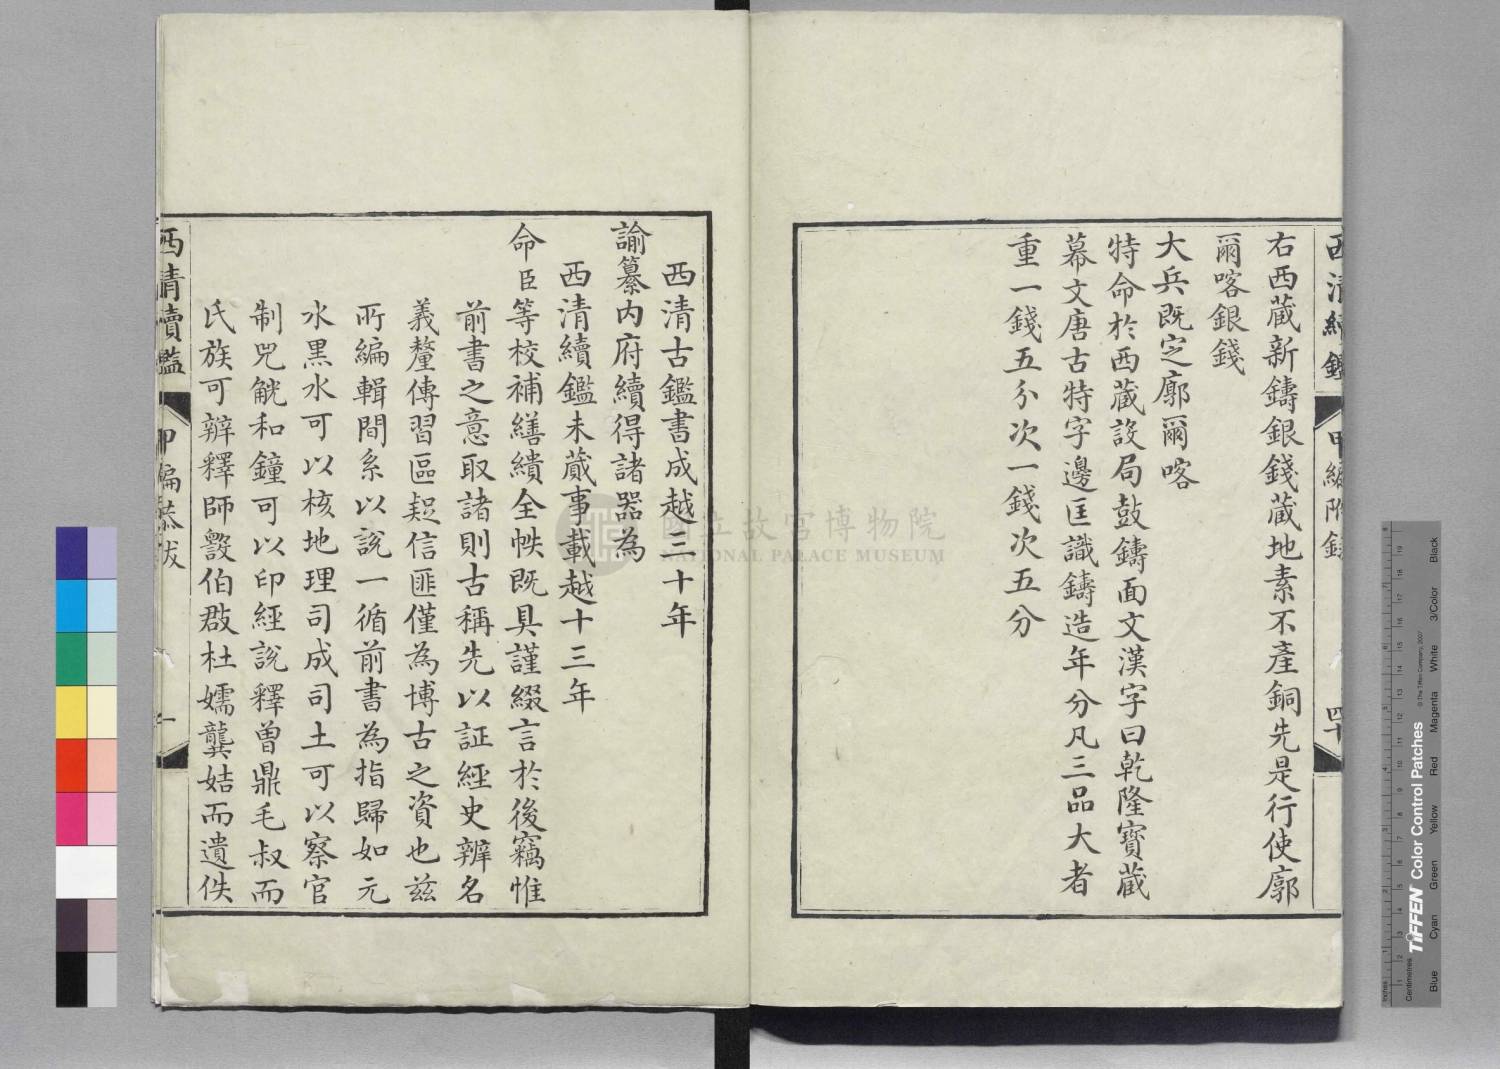 西清續鑑 甲編附錄 四十
右西藏新鑄銀錢藏地素不產銅先是行使廓
爾喀銀錢
大兵既定廓爾喀
特命於西藏設局鼓鑄面文漢字曰乾隆寶藏
幕文唐古特字邊匡識鑄造年分凡三品大者
重一錢五分次一錢次五分
西清古鑑書成越三十年
諭纂內府續得諸器為
西清續鑑未蕆事載越十三年
命臣等校補繕繢全帙既具謹綴言於後竊惟
前書之意取諸則古稱先以証經史辨名
義釐傳習區疑信匪僅為博古之資也茲
所編輯間系以說一循前書為指歸如元
水黑水可以核地理司成司土可以察官
制兕觥和鐘可以印經說釋曾鼎毛叔而
氏族可辨釋師毀伯㪤杜嬬龔姞而遺佚
西清續鑑 甲編恭跋 一
國立故宮博物院
NATIONAL PALACE MUSEUM
TIFFEN Color Control Patches
© The Tiffen Company, 2007
Blue Cyan Green Yellow Red Magenta White 3/Color Black
Inches
Centimetres